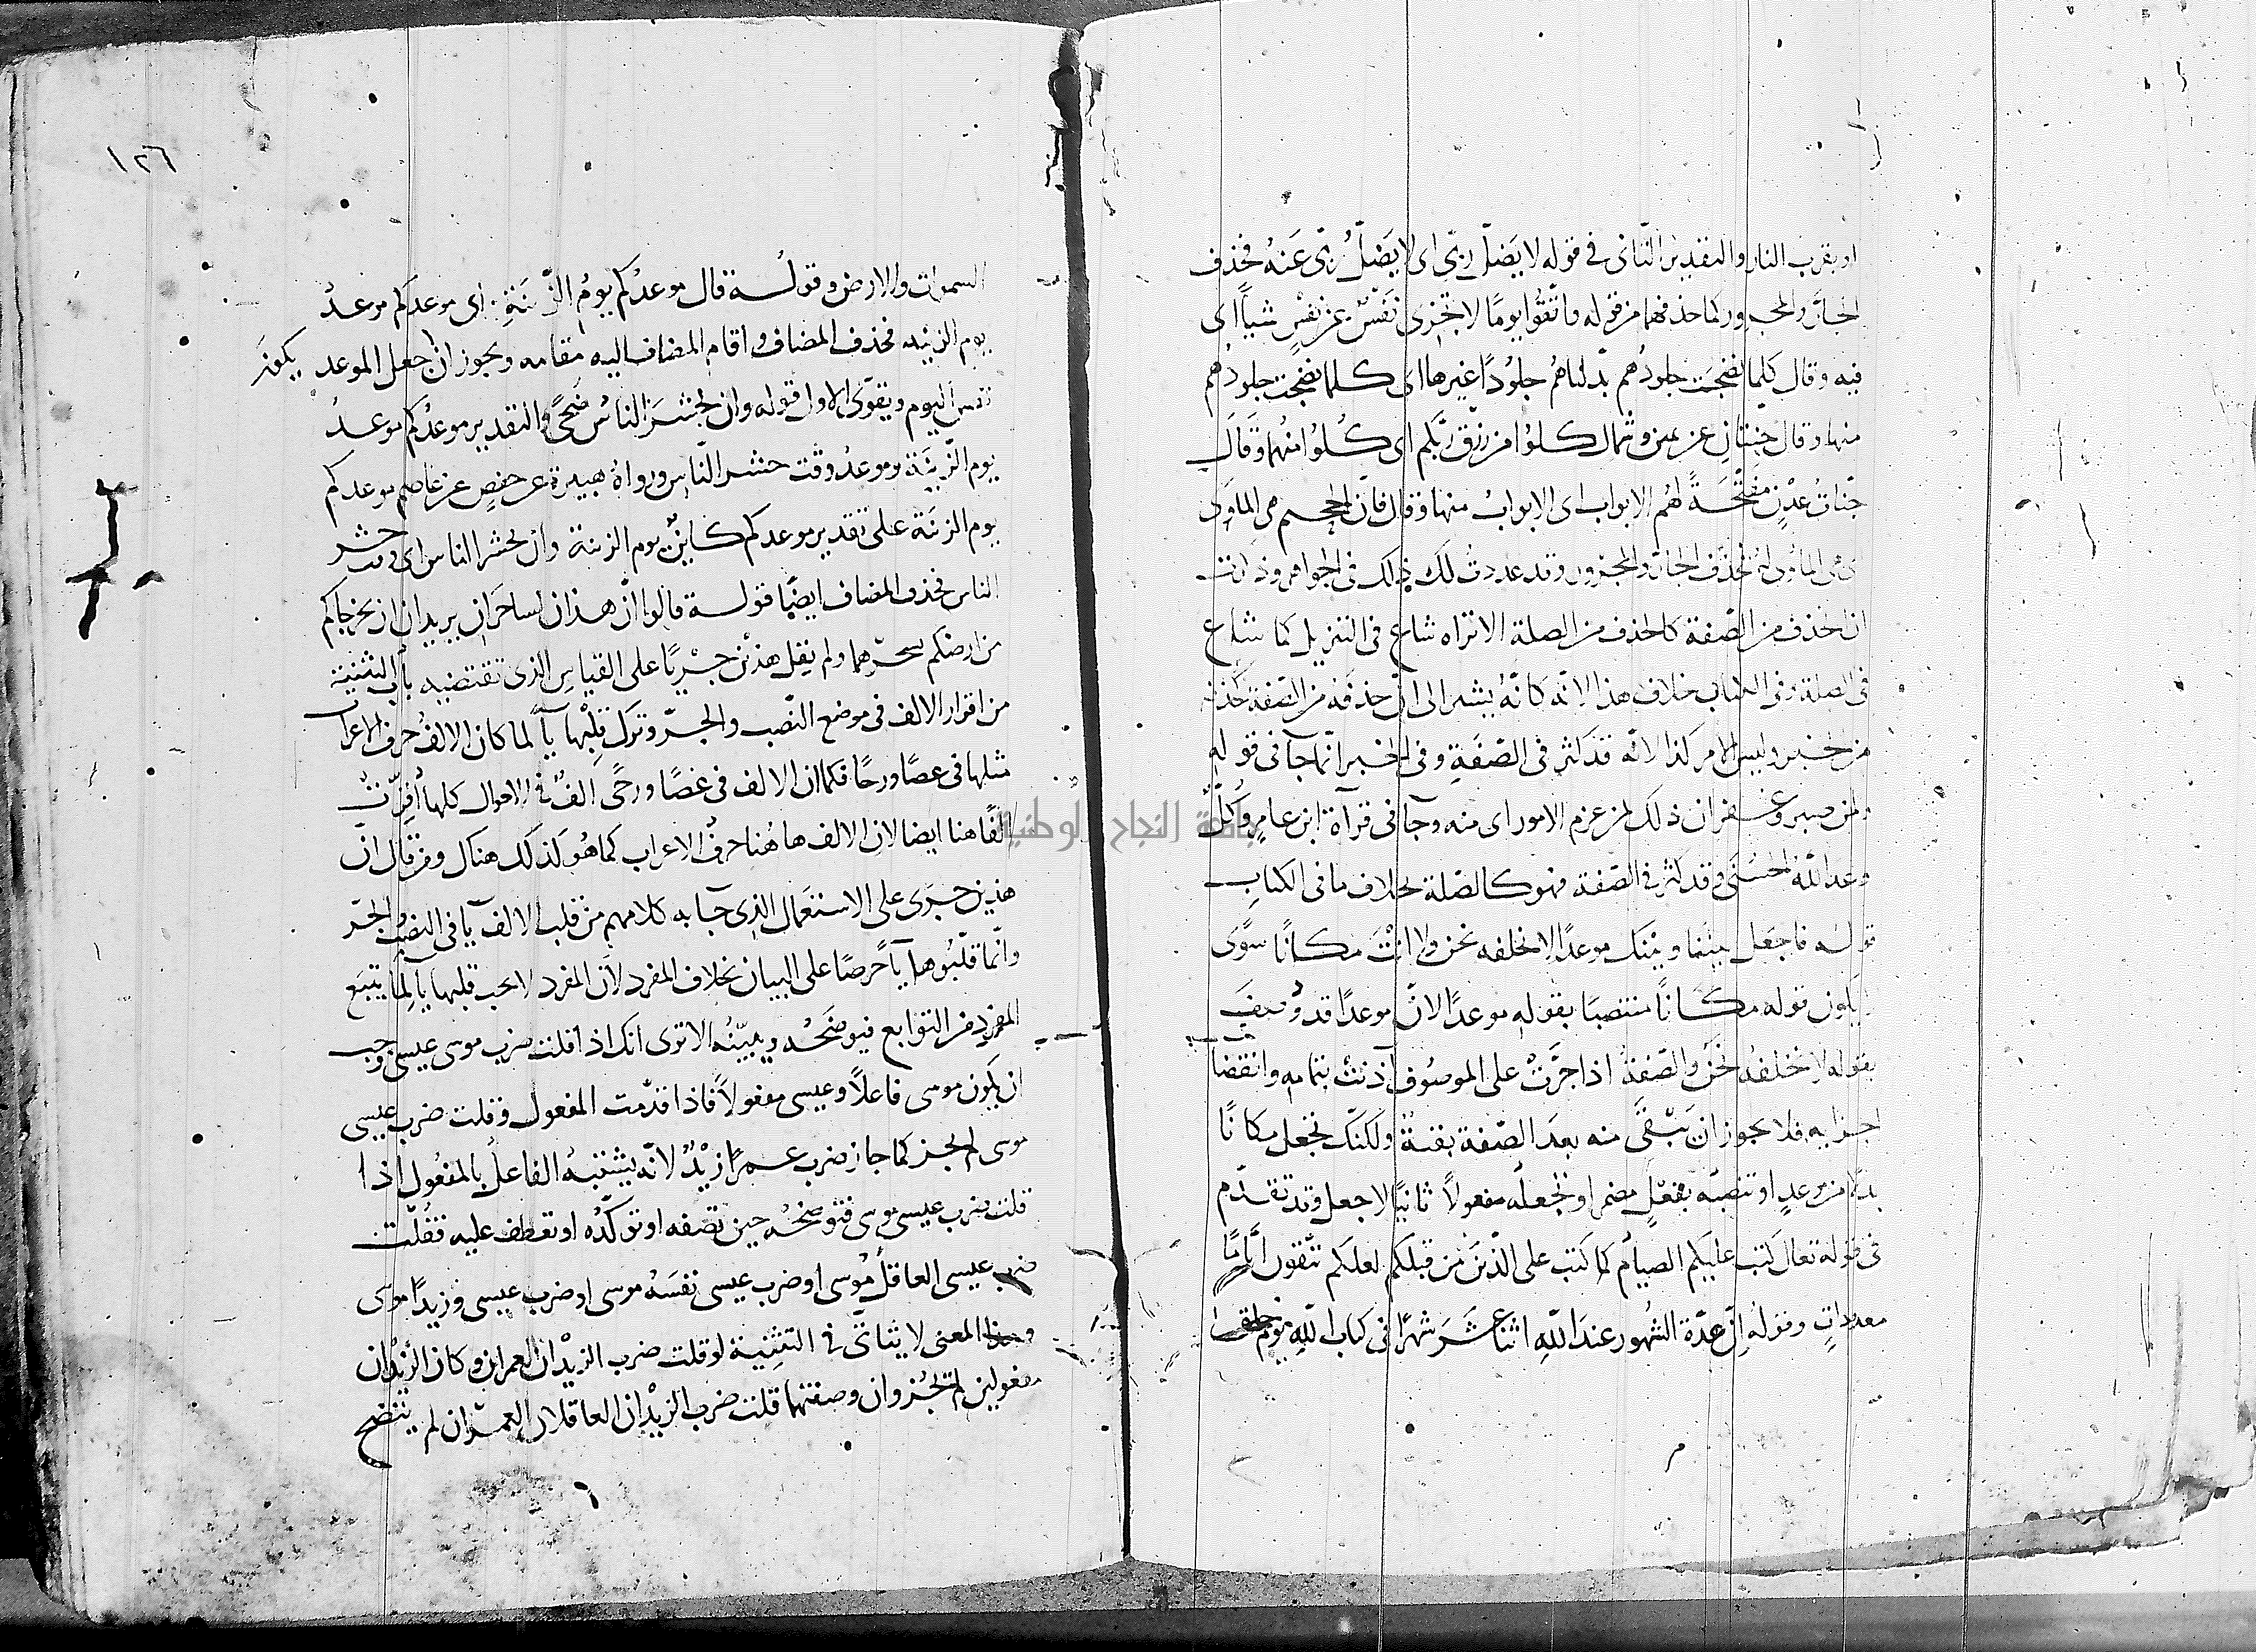 او بقرب النار والتقدير الثانى فى قوله لا يضل ربى اى لا يضل ربى عنه فحذف
الجار والمجرور كما حذفهما من قوله واتقوا يوما لا تجزى نفس عن نفس شيأ اى
فيه وقال كلما نضجت جلودهم بدلناهم جلودا غيرها اى كلما نضجت جلودهم
منها وقال جنتان عن يمين وشمال كلوا من رزق ربكم اى كلوا منهما وقال
جنات عدن مفتحة لهم الابواب اى الابواب منها وقال فان الجحيم هى الماوى
هى الماوى له فحذف الجار والمجرور وقد عددت لك ذلك فى الجواهر وذكرت
ان الحذف من الصفة كالحذف من الصلة الا تراه شاع فى التنزيل كما شاع
فى الصلة وفى الكتاب خلاف هذا لانه كانه يشير الى ان حذفه من الصفة كحذفه
من الخبر وليس الامر كذا لانه قد كثر فى الصفة وفى الخبر انما جآ فى قوله
ولمن صبر وغفر ان ذلك لمن عزم الامور اى منه وجآ فى قرآة ابن عامر وكل
وعد الله الحسنى وقد كثر فى الصفة فهو كالصلة بخلاف ما فى الكتاب
قوله فاجعل بيننا وبينك موعدا لا نخلفه نحن ولا انت مكانا سوى
يكون قوله مكانا منتصبا بقوله موعدا لان موعدا قد وصف
بقوله لا نخلفه نحن والصفة اذا جرت على الموصوف آذنت بتمامه وانقضا
اجزايه فلا يجوز ان تبقى منه بعد الصفة بقية ولكنك تجعل مكانا
بدلا من موعد او تنصبه بفعل مضمر او تجعله مفعولا ثانيا لاجعل وقد تقدم
فى قوله تعالى كتب عليكم الصيام كما كتب على الذين من قبلكم لعلكم تتقون اياما
معدودات وقوله ان عدة الشهور عند الله اثنا عشر شهرا فى كتاب الله يوم خلق
١٢٦
السموات والارض وقوله قال موعدكم يوم الزينة اى موعدكم موعد
يوم الزينه فحذف المضاف واقام المضاف اليه مقامه ويجوز ان جعل الموعد يكون
نفس اليوم ويقوى الاول قوله وان يحشر الناس ضحى والتقدير موعدكم موعد
يوم الزينة وموعد وقت حشر الناس ورواه هبيرة عن حفص عن عاصم موعدكم
يوم الزينة على تقدير موعدكم كاين يوم الزينة وان يحشر الناس اى وقت حشر
الناس فحذف المضاف ايضا قوله قالوا ان هذان لساحران يريدان ان يخرجاكم
من ارضكم بسحرهما ولم يقل هذين جريا على القياس الذى تقتضيه باب التثنية
من اقرار الالف فى موضع النصب والجر وترك قلبها يآ لما كان الالف حرف الاعراب
مثلها فى عصا ورحا فكما ان الالف فى عصا ورحى الف فى الاحوال كلها اقرت
الفا هنا ايضا لان الالف هاهنا حرف الاعراب كما هو كذلك هناك ومن قال ان
هذين جرى على الاستعمال الذى جآ به كلامهم من قلب الالف يآ فى النصب والجر
وانما قلبوها يآ حرصا على البيان بخلاف المفرد لان المفرد لا يجب قلبها يآ لما يتبع
المفرد من التوابع فيوضحه ويبينه الا ترى انك اذا قلت ضرب موسى عيسى وجب
ان يكون موسى فاعلا وعيسى مفعولا فاذا قدمت المفعول وقلت ضرب عيسى
موسى لم يجز كما جاز ضرب عمرا زيد لانه يشتبه الفاعل بالمفعول اذا
قلت ضرب عيسى موسى فتوضحه حين تصفه او توكده او تعطف عليه فتقلت
ضرب عيسى العاقل موسى او ضرب عيسى نفسه موسى او ضرب عيسى وزيدا موسى
وهذا المعنى لا يتاتى فى التثنية لو قلت ضرب الزيدان العمران وكان الزيدان
مفعولين لم يجز وان وصفتهما قلت ضرب الزيدان العاقلان العمران لم يتضح
جامعة النجاح الوطنية